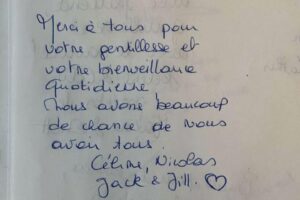 Merci à tous pour
votre gentillesse et
votre bienveillance
quotidienne.
Nous avons beaucoup
de chance de vous
avoir tous.
Céline, Nicolas
Jack & Jill. ♡